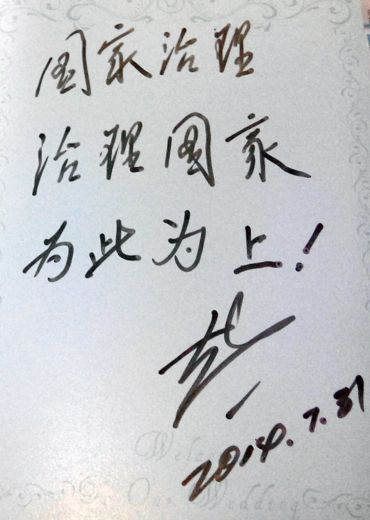 国家治理
治理国家
为此为上!
2014.7.31
Welcome
Our Wedding